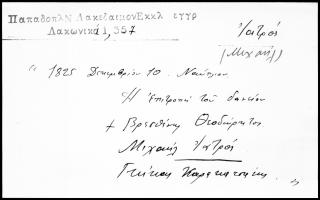 Παπαδοπλ Ν Λακεδαιμον Εκκλ εγγρ
Λακωνικά 1, 357
Ιατρός
(Μιχαήλ)
" 1825 Δεκεμβρίου 10. Ναύπλιον
Η Επιτροπή του δανείου
+ Βρεσθένης Θεοδώρητος
Μιχαήλ Ιατρός
Γκίκας Καρακατσάνης "